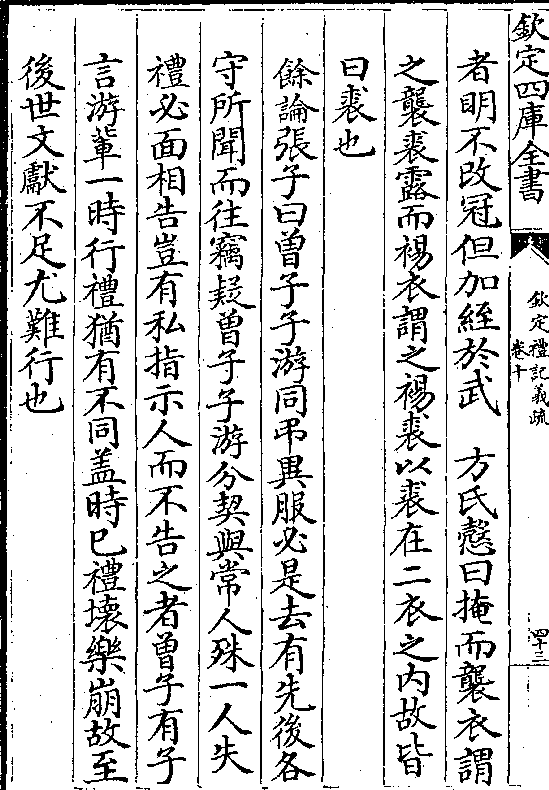 欽定四庫全書
欽定禮記義疏
卷十
四十三
者明不改冠但加絰於武　方氏慤曰掩而襲衣謂
之襲裘露而裼衣謂之裼裘以裘在二衣之内故皆
曰裘也
餘論張子曰曾子子游同弔異服必是去有先後各
守所聞而往竊疑曾子子游分契與常人殊一人失
禮必面相告豈有私指示人而不告之者曾子有子
言游輩一時行禮猶有不同盖時已禮壞樂崩故至
後世文獻不足尤難行也